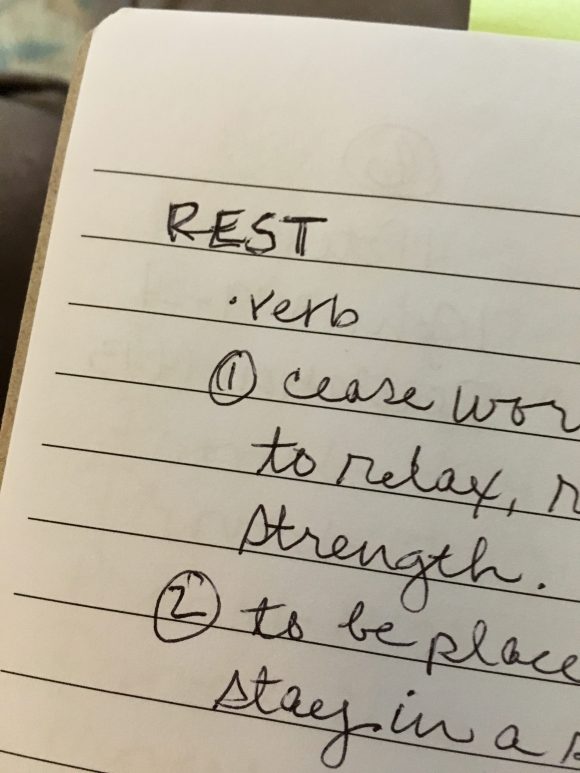 REST
· verb
① cease wor
to relax, r
strength.
② to be place
stay in a s